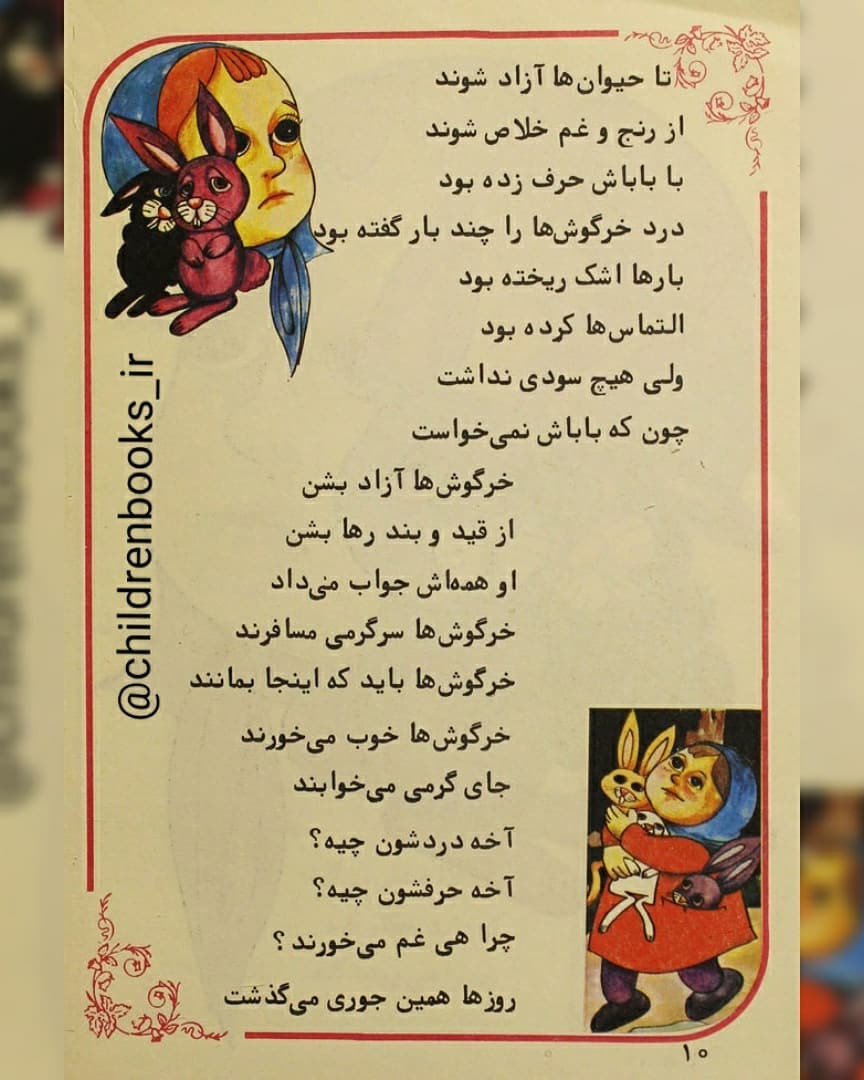 تا حیوان‌ها آزاد شوند
از رنج و غم خلاص شوند
با باباش حرف زده بود
درد خرگوش‌ها را چند بار گفته بود
بارها اشک ریخته بود
التماس‌ها کرده بود
ولی هیچ سودی نداشت
چون که باباش نمی‌خواست
خرگوش‌ها آزاد بشن
از قید و بند رها بشن
او همه‌اش جواب می‌داد
خرگوش‌ها سرگرمی مسافرند
خرگوش‌ها باید که اینجا بمانند
خرگوش‌ها خوب می‌خورند
جای گرمی می‌خوابند
آخه دردشون چیه؟
آخه حرفشون چیه؟
چرا هی غم می‌خورند؟
روزها همین جوری می‌گذشت
۱۰
@childrenbooks_ir